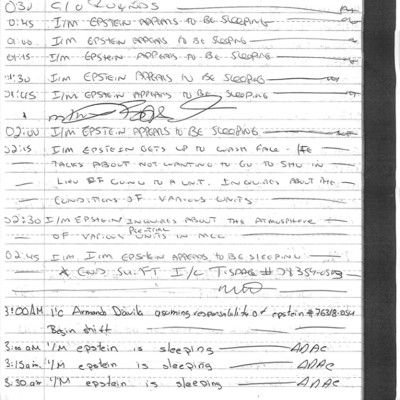 0:30 C/O ROUNDS
0:45 I/M EPSTEIN APPEARS TO BE SLEEPING
01:00 I/M EPSTEIN APPEARS TO BE SLEEPING
01:15 I/M EPSTEIN APPEARS TO BE SLEEPING
01:30 I/M EPSTEIN APPEARS TO BE SLEEPING
01:45 I/M EPSTEIN APPEARS TO BE SLEEPING
02:00 I/M EPSTEIN APPEARS TO BE SLEEPING
02:15 I/M EPSTEIN GETS UP TO WASH FACE. HE
TALKS ABOUT NOT WANTING TO GO TO SHU IN
LIEU OF GOING TO A UNIT. INQUIRES ABOUT THE
CONDITIONS OF VARIOUS UNITS
02:30 I/M EPSTEIN INQUIRES ABOUT THE ATMOSPHERE
OF VARIOUS UNITS IN MCC
02:45 I/M EPSTEIN APPEARS TO BE SLEEPING
* END SHIFT I/C
3:00AM I/C Armando Dávila assuming responsibility of epstein #76318-054
Begin shift
3:00 AM I/M epstein is sleeping
3:15am. I/M epstein is sleeping
3:30 am I/M epstein is sleeping